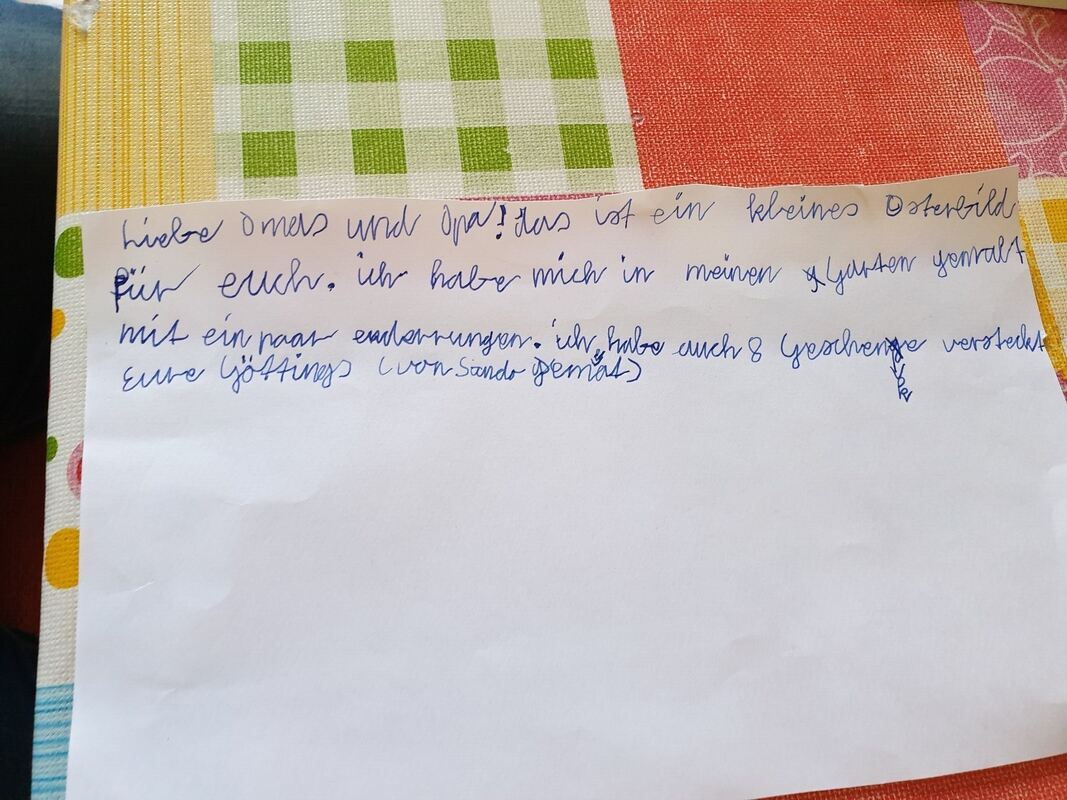 Liebe Omas und Opa! das ist ein kleines Osterbild
für euch. ich habe mich in meinen Garten gemalt
mit ein paar enderrungen. ich habe auch 8 Geschenke versteckt
Eure Göttings (von Sando gemalt)